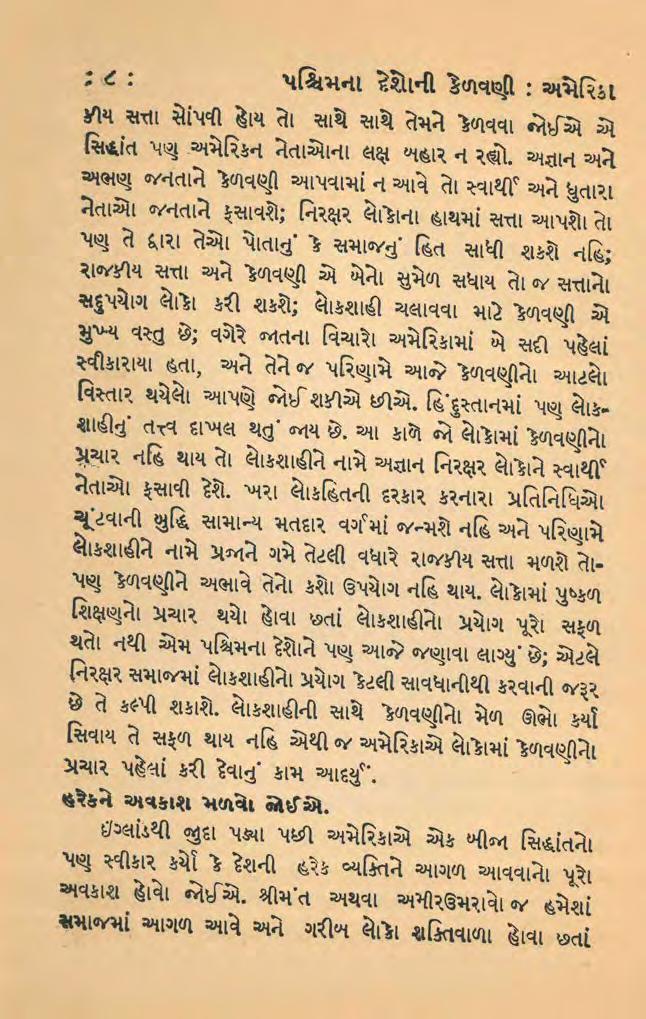 : ૮ : પશ્ચિમના દેશોની કેળવણી : અમેરિકા
કીય સત્તા સોંપવી હોય તો સાથે સાથે તેમને કેળવવા જોઈએ એ
સિદ્ધાંત પણ અમેરિકન નેતાઓના લક્ષ બહાર ન રહ્યો. અજ્ઞાન અને
અભણ જનતાને કેળવણી આપવામાં ન આવે તો સ્વાર્થી અને ધુતારા
નેતાઓ જનતાને ફસાવશે; નિરક્ષર લોકોના હાથમાં સત્તા આપશો તો
પણ તે દ્વારા તેઓ પોતાનું કે સમાજનું હિત સાધી શકશે નહિ;
રાજકીય સત્તા અને કેળવણી એ બેનો સુમેળ સધાય તો જ સત્તાનો
સદુપયોગ લોકો કરી શકશે; લોકશાહી ચલાવવા માટે કેળવણી એ
મુખ્ય વસ્તુ છે; વગેરે જાતના વિચારો અમેરિકામાં બે સદી પહેલાં
સ્વીકારાયા હતા, અને તેને જ પરિણામે આજે કેળવણીનો આટલો
વિસ્તાર થયેલો આપણે જોઈ શકીએ છીએ. હિંદુસ્તાનમાં પણ લોક-
શાહીનું તત્ત્વ દાખલ થતું જાય છે. આ કાળે જો લોકોમાં કેળવણીનો
પ્રચાર નહિ થાય તો લોકશાહીને નામે અજ્ઞાન નિરક્ષર લોકોને સ્વાર્થી
નેતાઓ ફસાવી દેશે. ખરા લોકહિતની દરકાર કરનારા પ્રતિનિધિઓ
ચૂંટવાની બુદ્ધિ સામાન્ય મતદાર વર્ગમાં જન્મશે નહિ અને પરિણામે
લોકશાહીને નામે પ્રજાને ગમે તેટલી વધારે રાજકીય સત્તા મળશે તો-
પણ કેળવણીને અભાવે તેનો કશો ઉપયોગ નહિ થાય. લોકોમાં પુષ્કળ
શિક્ષણનો પ્રચાર થયો હોવા છતાં લોકશાહીનો પ્રયોગ પૂરો સફળ
થતો નથી એમ પશ્ચિમના દેશોને પણ આજે જણાવા લાગ્યું છે; એટલે
નિરક્ષર સમાજમાં લોકશાહીનો પ્રયોગ કેટલી સાવધાનીથી કરવાની જરૂર
છે તે કલ્પી શકાશે. લોકશાહીની સાથે કેળવણીનો મેળ ઊભો કર્યા
સિવાય તે સફળ થાય નહિ એથી જ અમેરિકાએ લોકોમાં કેળવણીનો
પ્રચાર પહેલાં કરી દેવાનું કામ આદર્યું.
હરેકને અવકાશ મળવો જોઈએ.
ઈંગ્લાંડથી જુદા પડ્યા પછી અમેરિકાએ એક બીજા સિદ્ધાંતનો
પણ સ્વીકાર કર્યો કે દેશની હરેક વ્યક્તિને આગળ આવવાનો પૂરો
અવકાશ હોવો જોઈએ. શ્રીમંત અથવા અમીરઉમરાવો જ હમેશાં
સમાજમાં આગળ આવે અને ગરીબ લોકો શક્તિવાળા હોવા છતાં